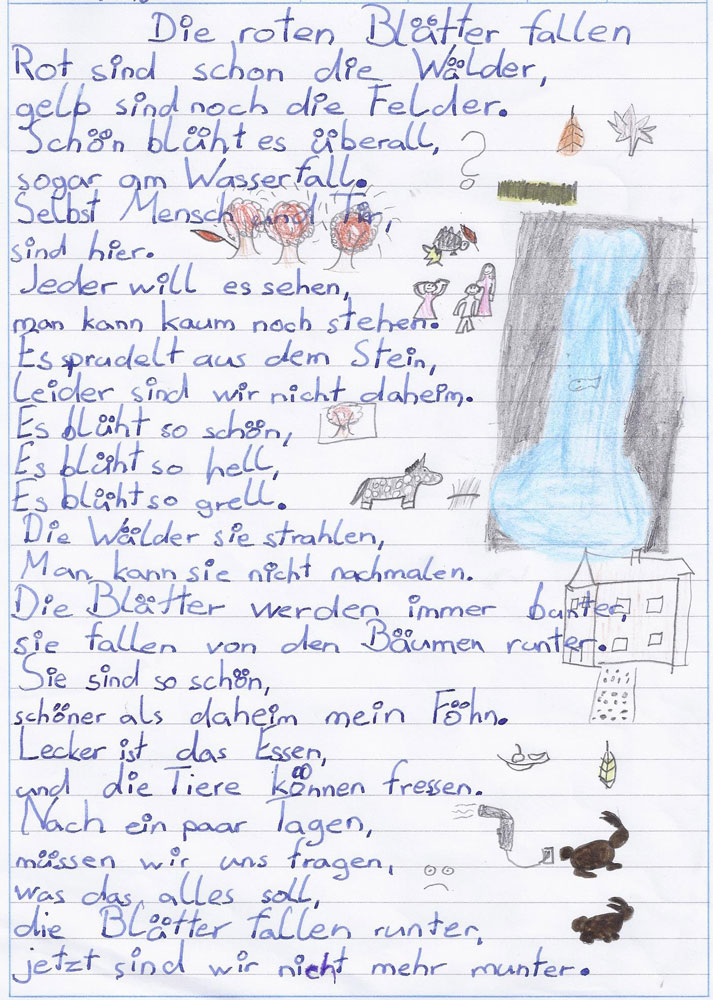 Die roten Blätter fallen
Rot sind schon die Wälder,
gelb sind noch die Felder.
Schön blüht es überall,
?
sogar am Wasserfall.
Selbst Mensch und Tir,
sind hier.
Jeder will es sehen,
man kann kaum noch stehen.
Es sprudelt aus dem Stein,
Leider sind wir nicht daheim.
Es blüht so schön,
Es blüht so hell,
Es blüht so grell.
Die Wälder sie strahlen,
Man kann sie nicht nachmalen.
Die Blätter werden immer bunter,
sie fallen von den Bäumen runter.
Sie sind so schön,
schöner als daheim mein Föhn.
Lecker ist das Essen,
und die Tiere können fressen.
Nach ein paar Tagen,
müssen wir uns fragen,
was das alles soll,
die Blätter fallen runter,
jetzt sind wir nicht mehr munter.